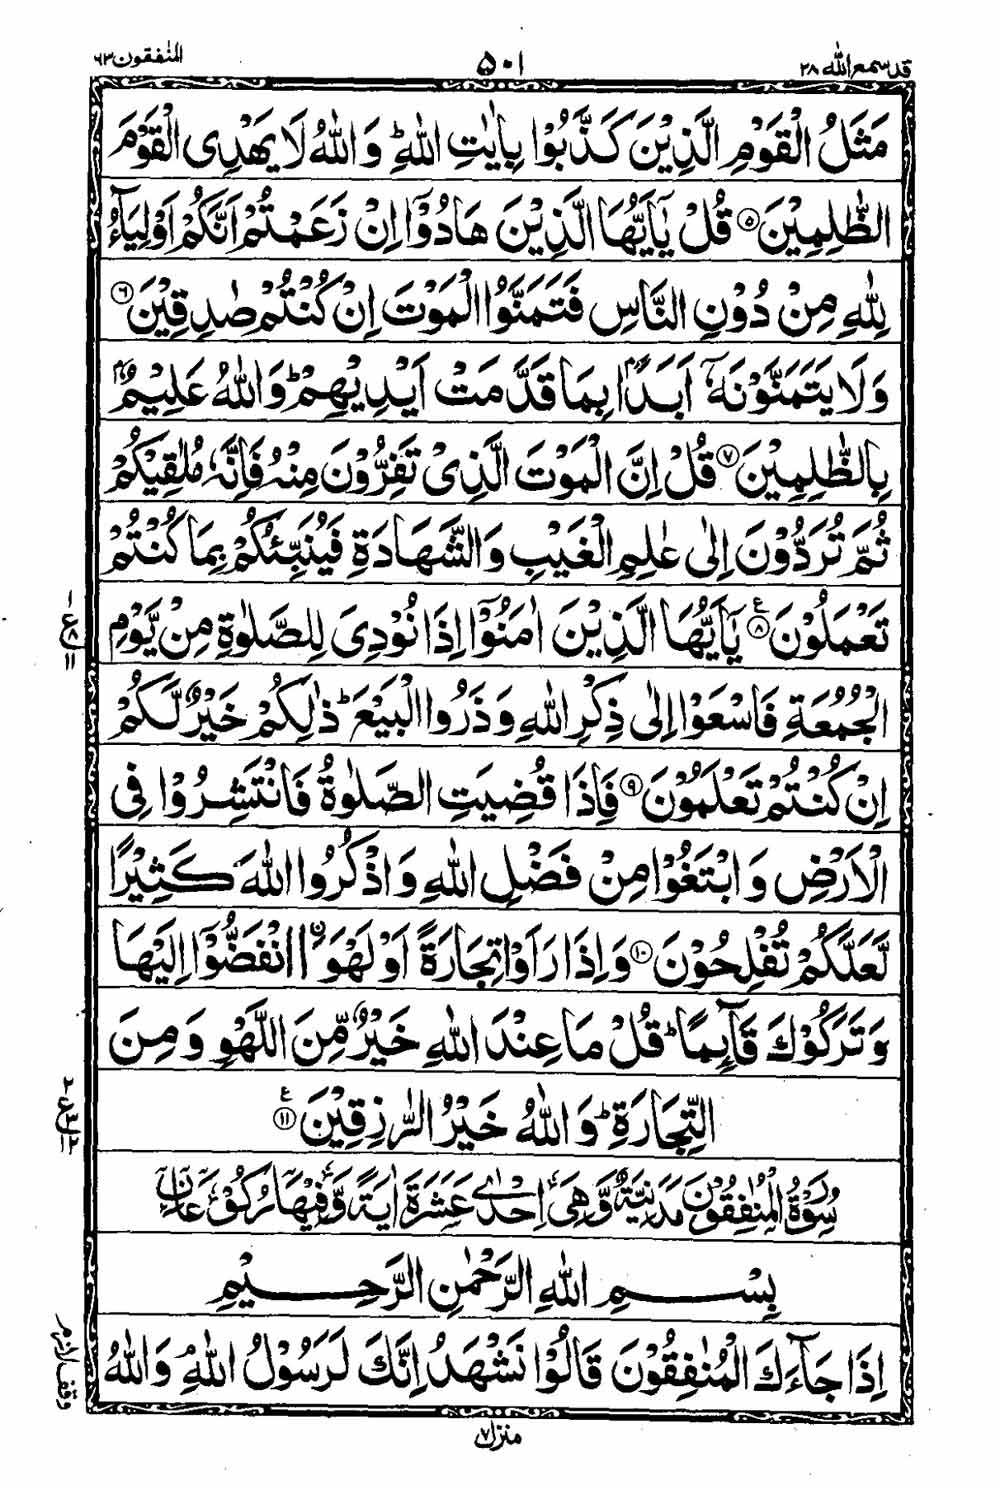 قد سمع الله ٢٨
٥٠١
المنٰفقون ٦٣
مَثَلُ الْقَوْمِ الَّذِيْنَ كَذَّبُوْا بِاٰيٰتِ اللّٰهِ ؕ وَاللّٰهُ لَا يَهْدِى الْقَوْمَ
الظّٰلِمِيْنَ ۝٥ قُلْ يٰۤاَيُّهَا الَّذِيْنَ هَادُوْۤا اِنْ زَعَمْتُمْ اَنَّكُمْ اَوْلِيَآءُ
لِلّٰهِ مِنْ دُوْنِ النَّاسِ فَتَمَنَّوُا الْمَوْتَ اِنْ كُنْتُمْ صٰدِقِيْنَ ۝٦
وَلَا يَتَمَنَّوْنَهٗۤ اَبَدًۢا بِمَا قَدَّمَتْ اَيْدِيْهِمْ ؕ وَاللّٰهُ عَلِيْمٌۢ
بِالظّٰلِمِيْنَ ۝٧ قُلْ اِنَّ الْمَوْتَ الَّذِىْ تَفِرُّوْنَ مِنْهُ فَاِنَّهٗ مُلٰقِيْكُمْ
ثُمَّ تُرَدُّوْنَ اِلٰى عٰلِمِ الْغَيْبِ وَالشَّهَادَةِ فَيُنَبِّئُكُمْ بِمَا كُنْتُمْ
تَعْمَلُوْنَ ۝٨ ع يٰۤاَيُّهَا الَّذِيْنَ اٰمَنُوْۤا اِذَا نُوْدِىَ لِلصَّلٰوةِ مِنْ يَّوْمِ
الْجُمُعَةِ فَاسْعَوْا اِلٰى ذِكْرِ اللّٰهِ وَذَرُوا الْبَيْعَ ؕ ذٰلِكُمْ خَيْرٌ لَّكُمْ
اِنْ كُنْتُمْ تَعْلَمُوْنَ ۝٩ فَاِذَا قُضِيَتِ الصَّلٰوةُ فَانْتَشِرُوْا فِى
الْاَرْضِ وَابْتَغُوْا مِنْ فَضْلِ اللّٰهِ وَاذْكُرُوا اللّٰهَ كَثِيْرًا
لَّعَلَّكُمْ تُفْلِحُوْنَ ۝١٠ وَاِذَا رَاَوْا تِجَارَةً اَوْ لَهْوَا۟ اۨنْفَضُّوْۤا اِلَيْهَا
وَتَرَكُوْكَ قَآئِمًا ؕ قُلْ مَا عِنْدَ اللّٰهِ خَيْرٌ مِّنَ اللَّهْوِ وَمِنَ
التِّجَارَةِ ؕ وَاللّٰهُ خَيْرُ الرّٰزِقِيْنَ ۝١١ ع
سُوْرَةُ الْمُنٰفِقُوْنَ مَدَنِيَّةٌ وَّهِىَ اِحْدٰى عَشْرَةَ اٰيَةً وَّفِيْهَا رُكُوْعَانِ
بِسْمِ اللّٰهِ الرَّحْمٰنِ الرَّحِيْمِ
اِذَا جَآءَكَ الْمُنٰفِقُوْنَ قَالُوْا نَشْهَدُ اِنَّكَ لَرَسُوْلُ اللّٰهِ ۘ وَاللّٰهُ
١ ع ٨ ١١
٢ ع ٣ ١٢
وقف لازم
منزل ٧